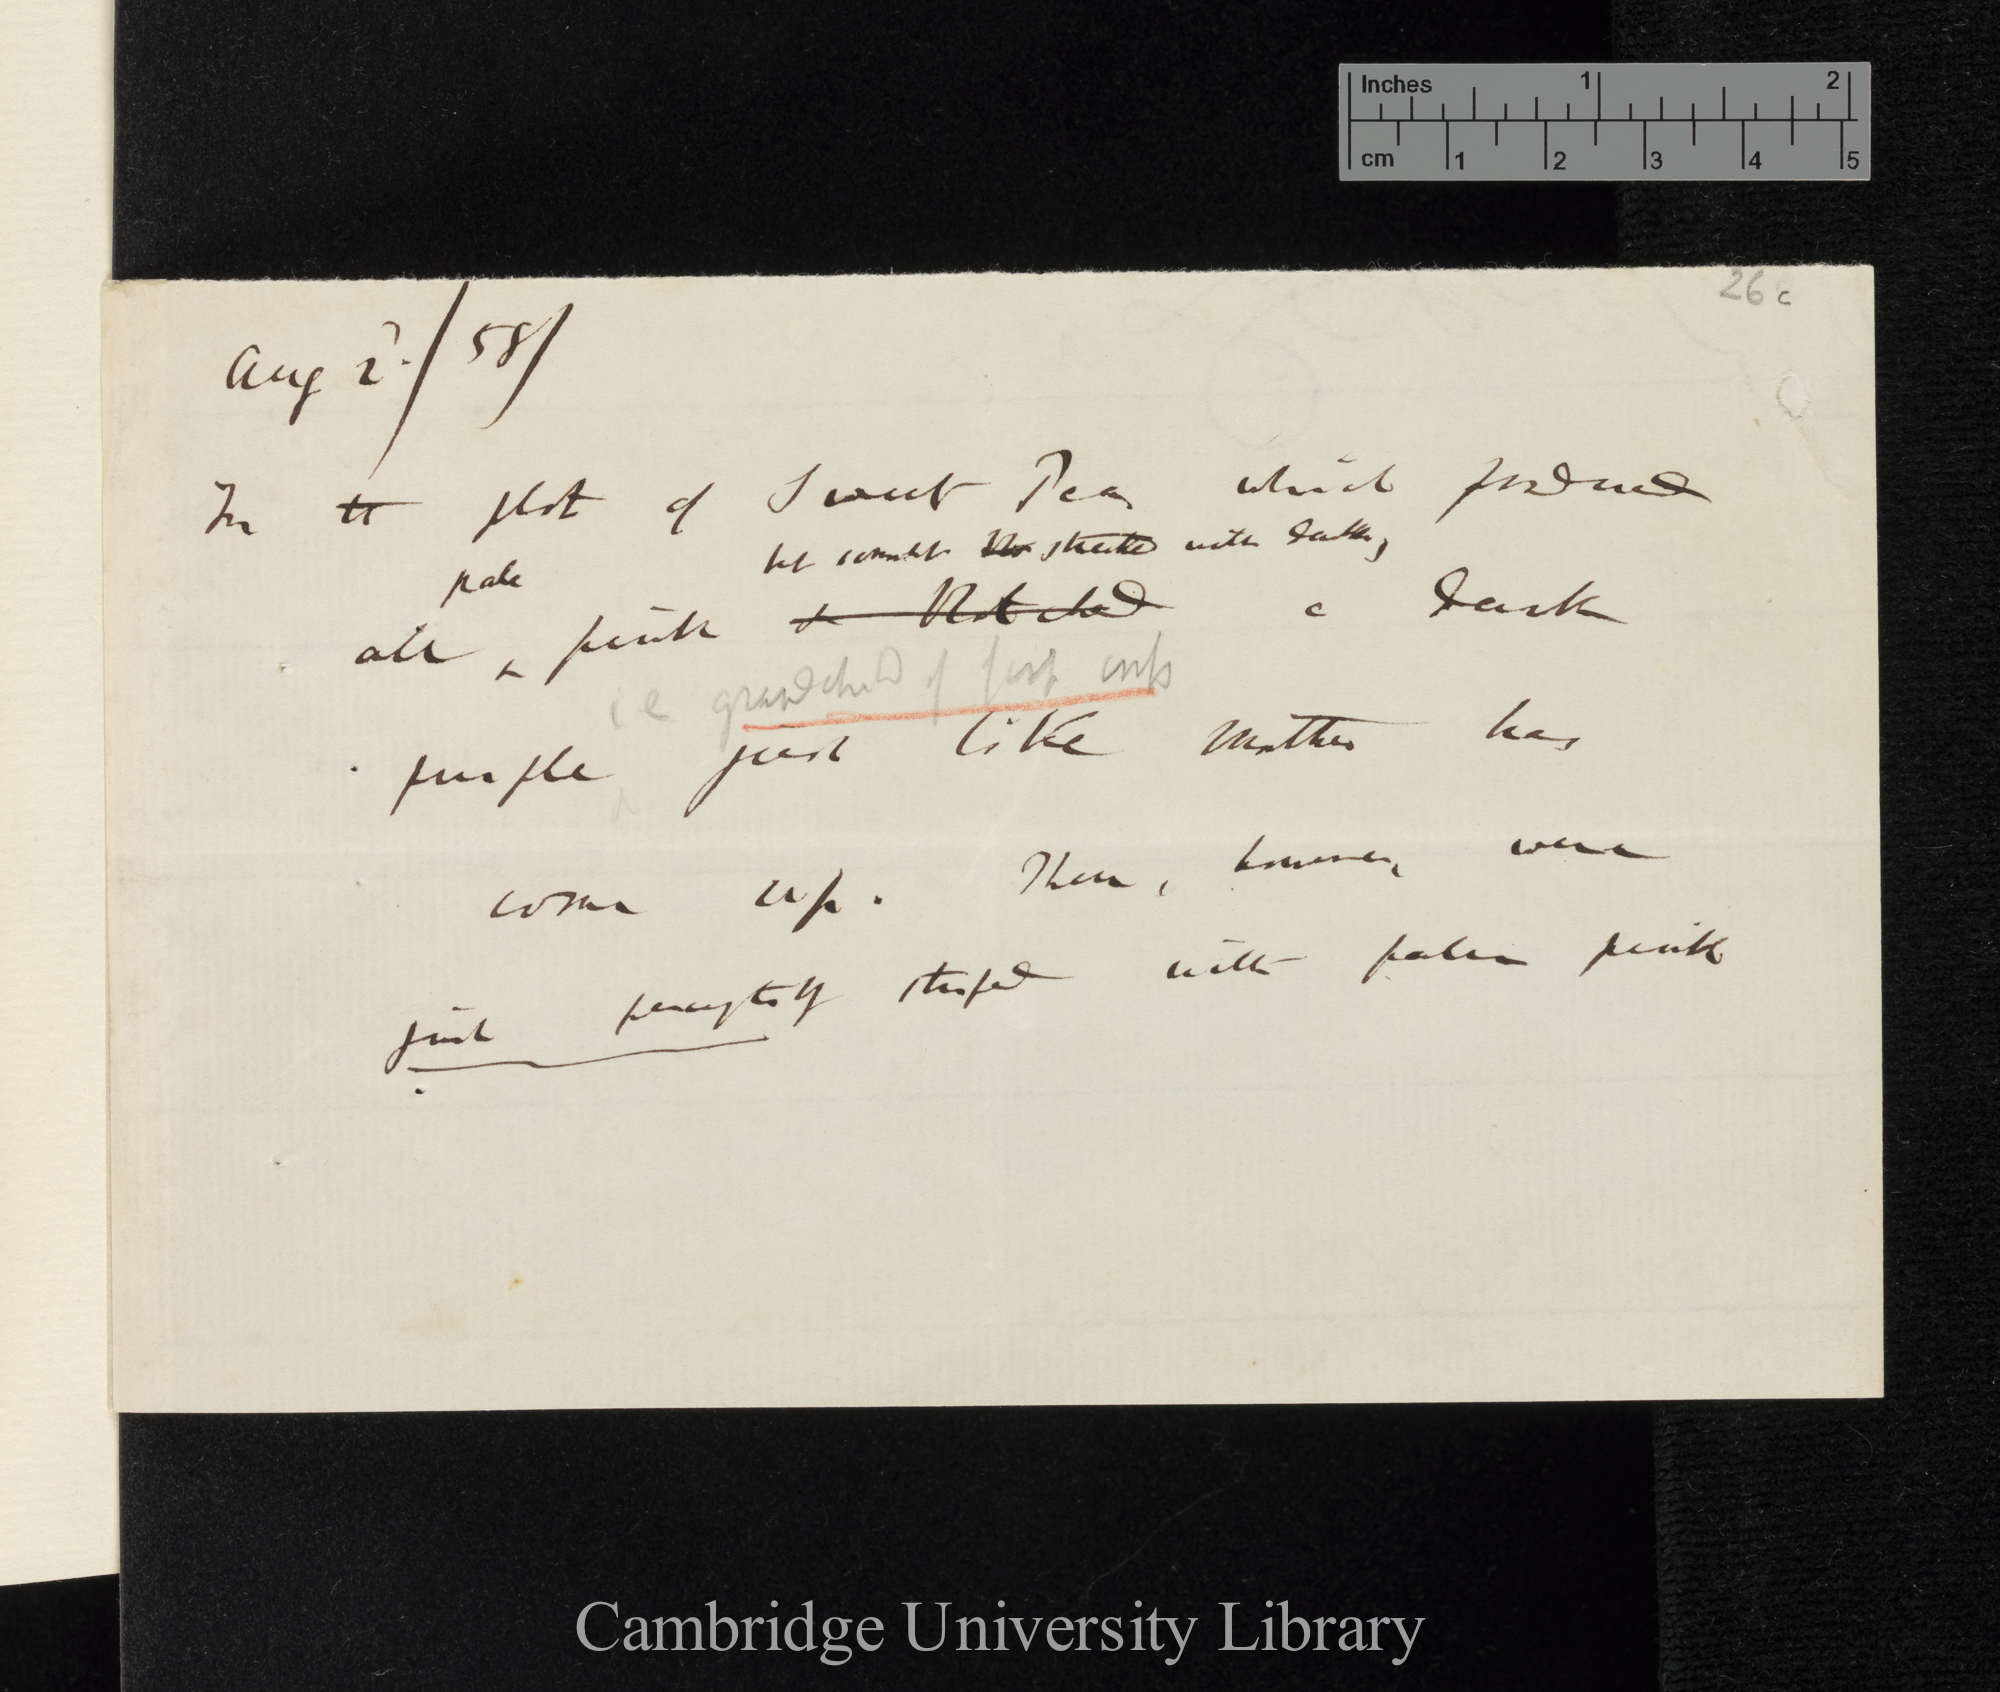 Inches 1 2
cm 1 2 3 4 5
26 c
Aug 2./58/
In tt plot of Sweet Peas which produced
but somewhat streaked with darker,
pale
all ^ pink Blotched a dark
i e grandchild of first cross
purple just like Mother has
come up. These, however, were
just perceptibly striped with paler pink
Cambridge University Library